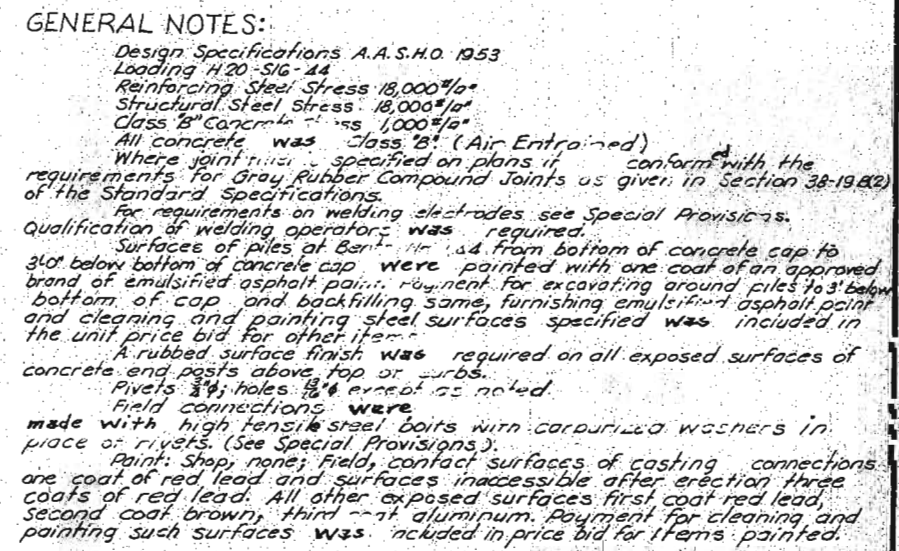 GENERAL NOTES:
Design Specifications A.A.S.H.O. 1953
Loading H20-S16-44
Reinforcing Steel Stress 18,000#/□"
Structural Steel Stress 18,000#/□"
Class "B" Concrete 1,000#/□"
All concrete was Class "B". (Air Entrained)
Where joint specified on plans it conformed with the
requirements for Gray Rubber Compound Joints as given in Section 38-19.B(2)
of the Standard Specifications.
For requirements on welding electrodes see Special Provisions.
Qualification of welding operators was required.
Surfaces of piles at from bottom of concrete cap to
3'-0" below bottom of concrete cap were painted with one coat of an approved
brand of emulsified asphalt paint. Payment for excavating around piles to 3' below
bottom of cap and backfilling same, furnishing emulsified asphalt paint
and cleaning and painting steel surfaces specified was included in
the unit price bid for other items.
A rubbed surface finish was required on all exposed surfaces of
concrete end posts above top of curbs.
Rivets 3/4"ϕ; holes 13/16"ϕ except as noted.
Field connections were
made with high tensile steel bolts with carburized washers in
place of rivets. (See Special Provisions).
Paint: Shop, none; Field, contact surfaces of casting connections
one coat of red lead and surfaces inaccessible after erection three
coats of red lead. All other exposed surfaces first coat red lead,
second coat brown, third coat aluminum. Payment for cleaning and
painting such surfaces was included in price bid for items painted.